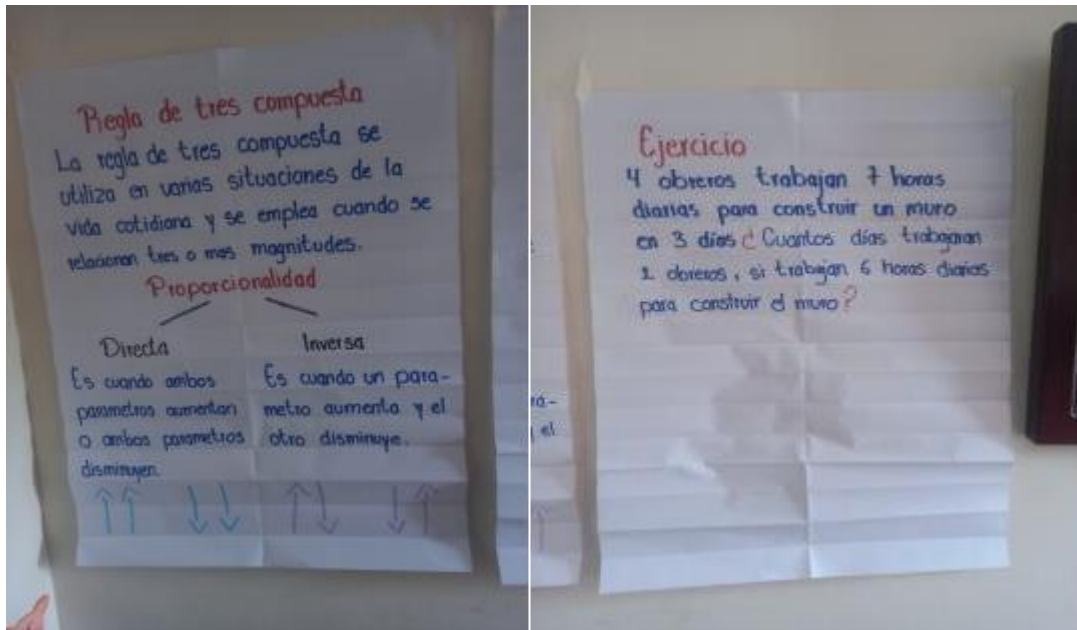 Regla de tres compuesta
La regla de tres compuesta se
utiliza en varias situaciones de la
vida cotidiana y se emplea cuando se
relacionan tres o mas magnitudes.
Proporcionalidad
Directa
Es cuando ambos
parametros aumentan
o ambos parametros
disminuyen.
Inversa
Es cuando un para-
metro aumenta y el
otro disminuye.
Ejercicio
4 obreros trabajan 7 horas
diarias para construir un muro
en 3 días ¿Cuantos días trabajaran
obreros, si trabajan 6 horas diarias
para construir el muro?
ra-
el